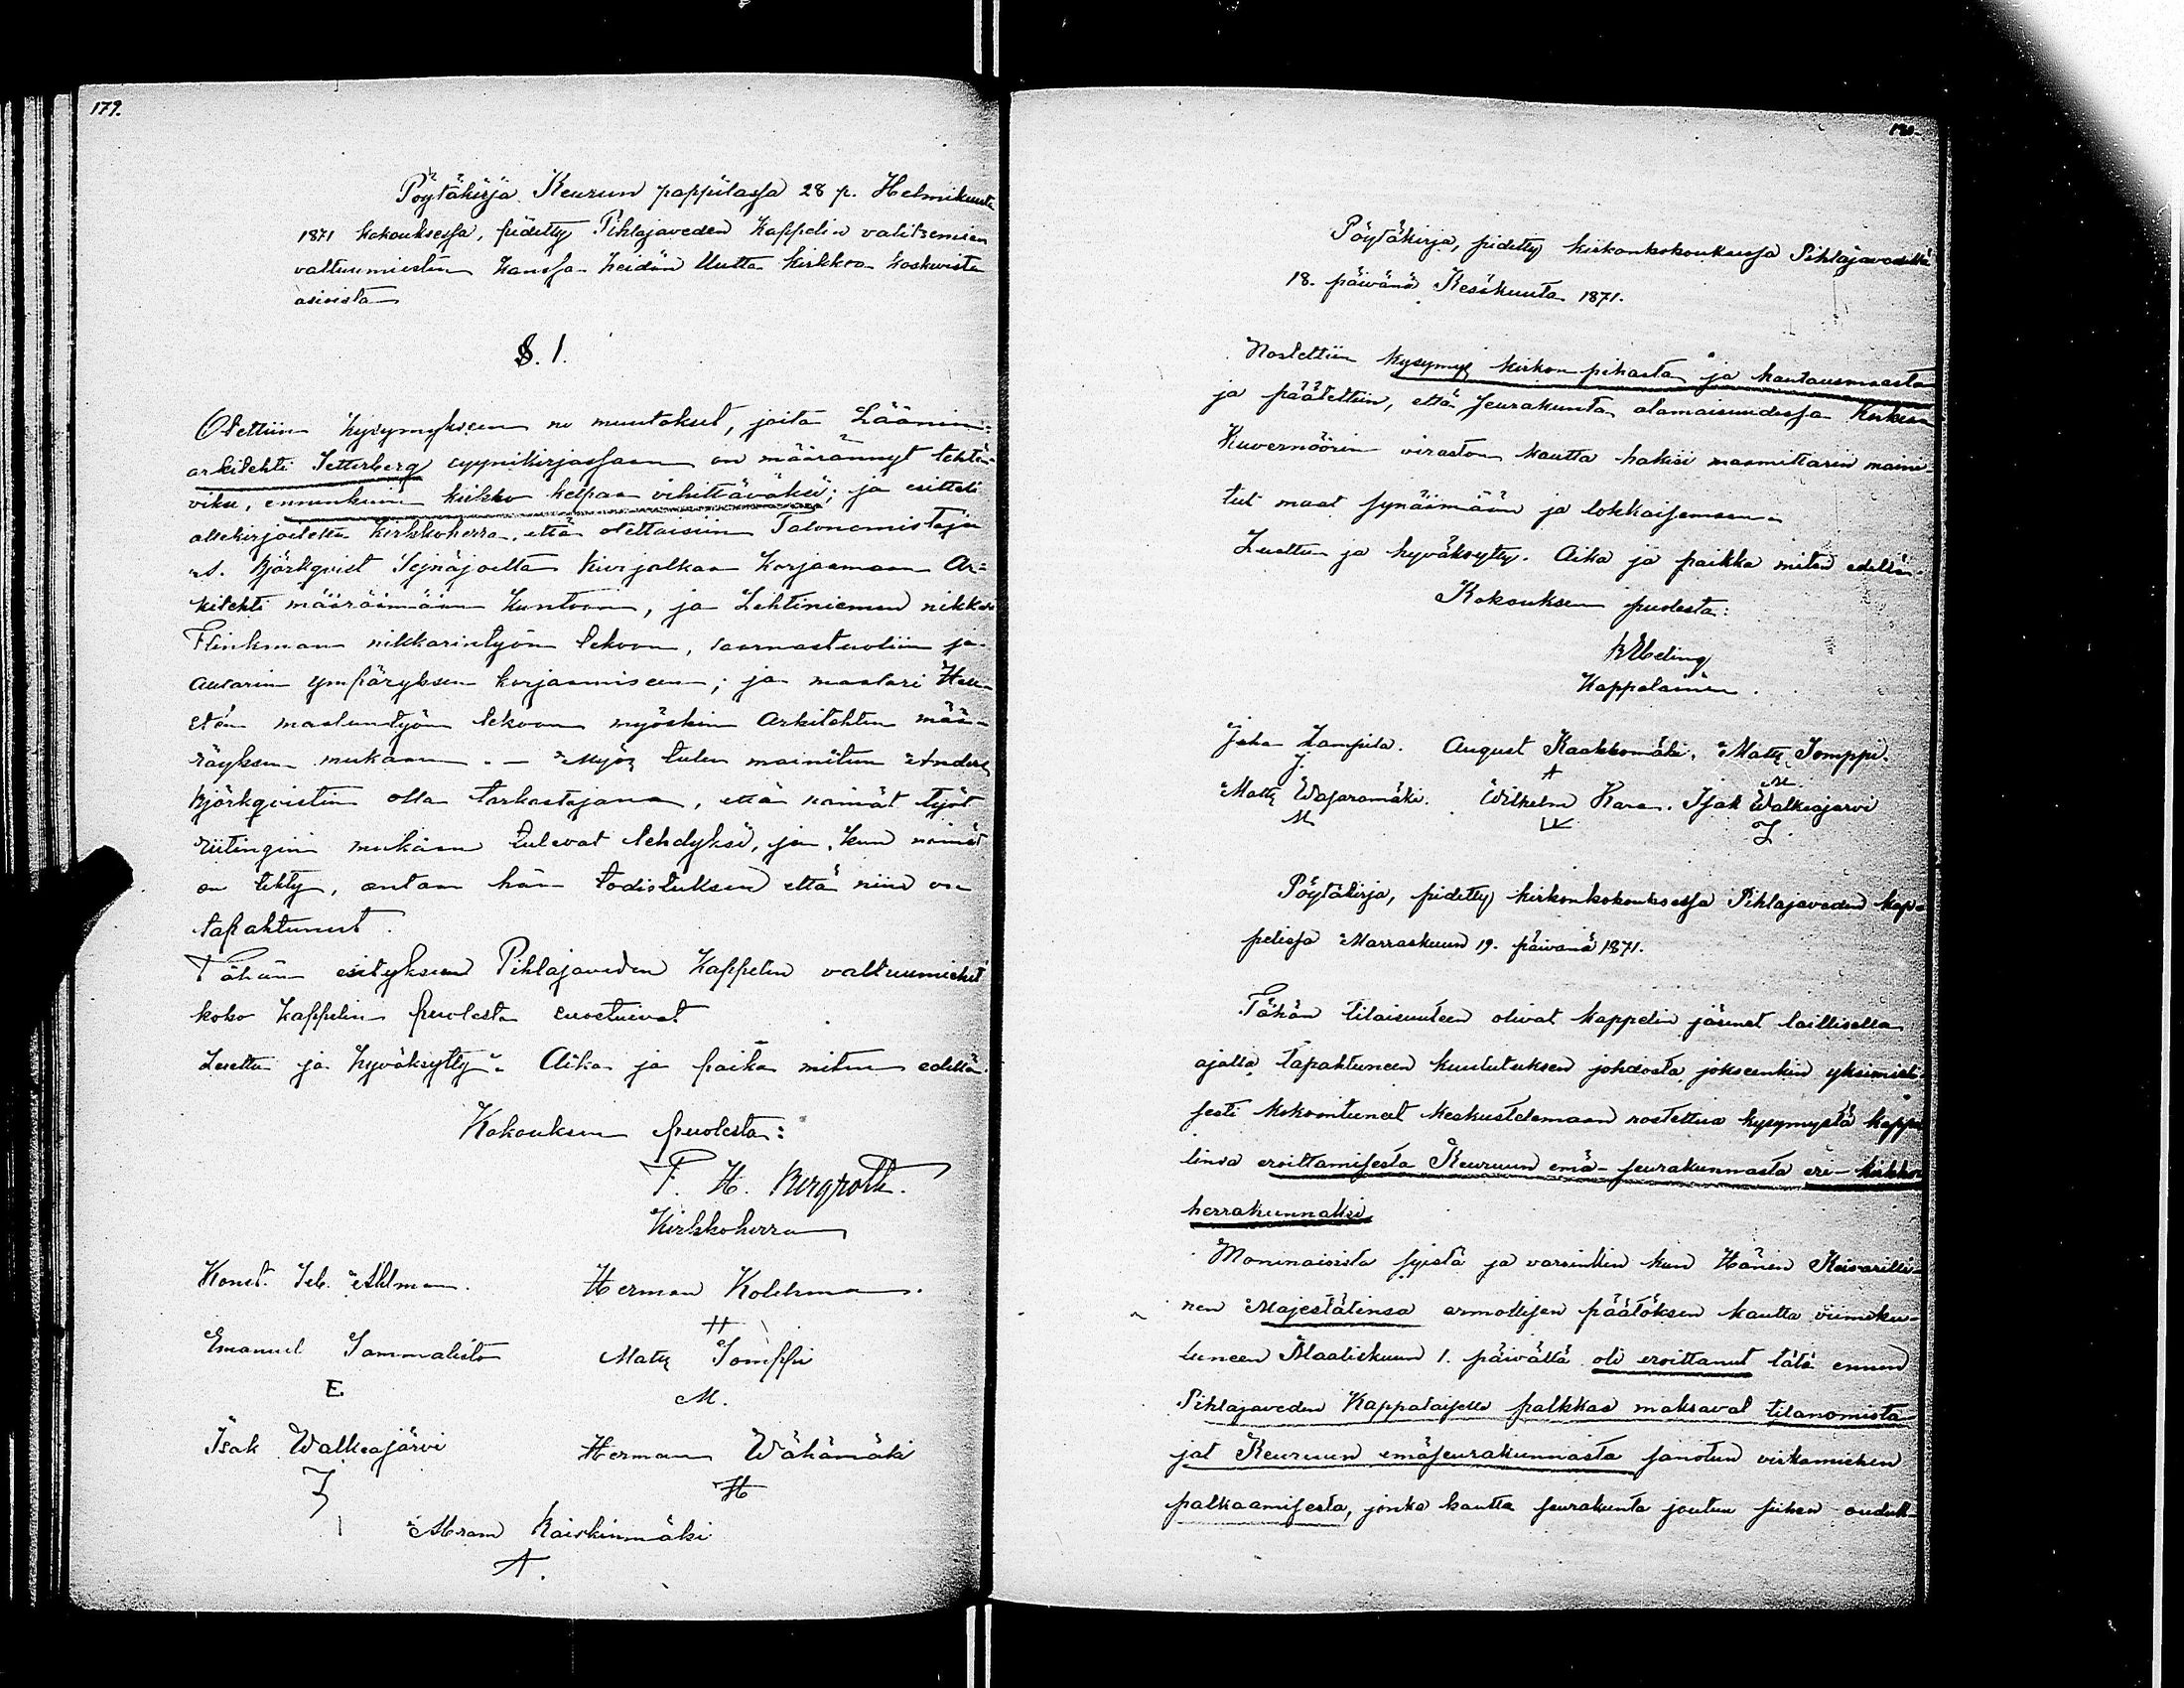 179.
Pöytäkirja Keurun pappilassa 28 p. Helmikuuta
1871 kokouksessa, pidetty Pihlajaveden Kappelin valitsemien
valtuumiesten kanssa heidän Uutta kirkkoa koskevista
asioista
§. 1.
Otettiin kysymykseen ne muutokset, joita Läänin-
arkitehti Setterberg syynikirjassaan on määrännyt tehtä-
viksi, ennenkuin kirkko kelpaa vihittäväksi; ja esitteli
allekirjoitettu Kirkkoherra, että otettaisiin Talonomistaja
A. Björkqvist Sejnäjoelta kivijalkaa korjaamaan Ar-
kitehti määräämään kuntoon, ja Lehtiniemen nikkari
Flinkman nikkarintyön tekoon, saarnastuoliin ja
autarin ympäryksen korjaamiseen; ja maalari
maalintyön tekoon myöskin Arkitehtin mää-
räyksen mukaan. — Myös tulee mainitun Anders
Björkqvistin olla tarkastajana, että nämät työt
riitingin mukaan tulevat tehdyksi, ja, kun nämät
on tehty, antaa hän todistuksen että niin on
tapahtunut.
Tähän esitykseen Pihlajaveden Kappelin valtuumiehet
koko kappelin puolesta suostuivat.
Luettu ja hyväksytty. Aika ja paikka miten edellä.
Kokouksen puolesta:
F. H. Bergroth.
Kirkkoherra
Konst. Seb. Ahlman. Herman Kolehma.
H
Emanuel Sammalisto Matts Somppi
E. M.
Isak Walkeajärvi Herman Wähämäki
I H
Abram Kaiskinmäki
A.
180.
Pöytäkirja, pidetty kirkonkokouksessa Pihlajavedellä
18. päivänä Kesäkuuta 1871.
Nostettiin kysymys kirkon pihasta ja hautausmaasta
ja päätettiin, että seurakunta alamaisuudessa Korkean
Kuvernöörin viraston kautta hakisi maamittarin maini-
tut maat synäämään ja lohkaisemaan
Luettu ja hyväksytty. Aika ja paikka miten edellä.
Kokouksen puolesta:
Ebeling
Kappalainen.
Juha Lampila. August Kaakkomäki. Matts Somppi.
J. A M.
Matts Wasaramäki. Wilhelm Hara. Isak Walkeajärvi
M W I.
Pöytäkirja, pidetty kirkonkokouksessa Pihlajaveden kap-
pelissa Marraskuun 19. päivänä 1871.
Tähän tilaisuuteen olivat kappelin jäsenet laillisella
ajalla tapahtuneen kuulutuksen johdosta, jokseenkin yksimieli-
sesti kokoontuneet keskustelemaan nostettua kysymystä kappe-
linsa eroittamisesta Keuruun emä-seurakunnasta eri-kirkko-
herrakunnaksi.
Moninaisista syistä ja varsinkin kun Hänen Keisarilli-
nen Majestätinsa armollisen päätöksen kautta viimeku-
luneen Maaliskuun 1. päivältä oli eroittanut tätä ennen
Pihlajaveden Kappalaiselle palkkaa maksavat tilanomista-
jat Keuruun emäseurakunnasta sanotun virkamiehen
palkaamisesta, jonka kautta seurakunta joutuu siihen ouduk-